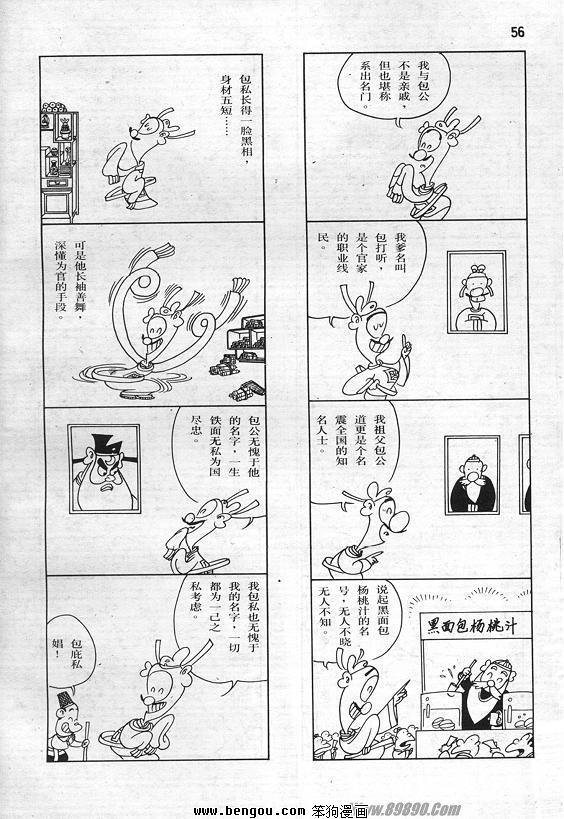 56
我与包公
不是亲戚，
但也堪称
系出名门。
我爹名叫
包打听，
是个官家
的职业线
民。
我祖父包公
道更是个名
震全国的知
名人士。
说起黑面包
杨桃汁的名
号，无人不晓
无人不知。
黑面包杨桃汁
包私长得一脸黑相，
身材五短……
可是他长袖善舞，
深懂为官的手段。
包公无愧于他
的名字，一生
铁面无私为国
尽忠。
我包私也无愧于
我的名字，一切
都为一己之
私考虑。
包庇私
娼！
www.bengou.com 笨狗漫画
www.89890.com